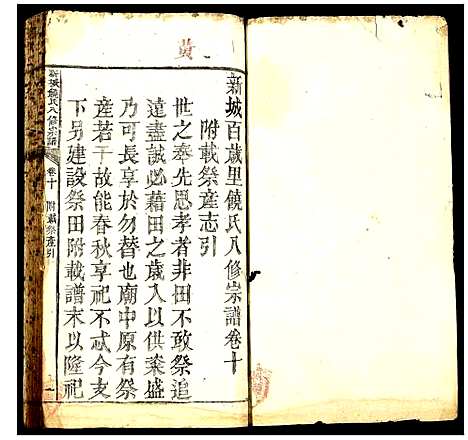 黃
新城百歲里饒氏八修宗譜卷十
附載祭產志引
世之奉先思孝者非田不敢祭追
遠盡誠必藉田之歲入以供粢盛
乃可長享於勿替也廟中原有祭
產若干故能春秋享祀不忒今支
下另建設祭田附載譜末以隆祀
新城饒氏八修宗譜
卷十
附載祭產引
一